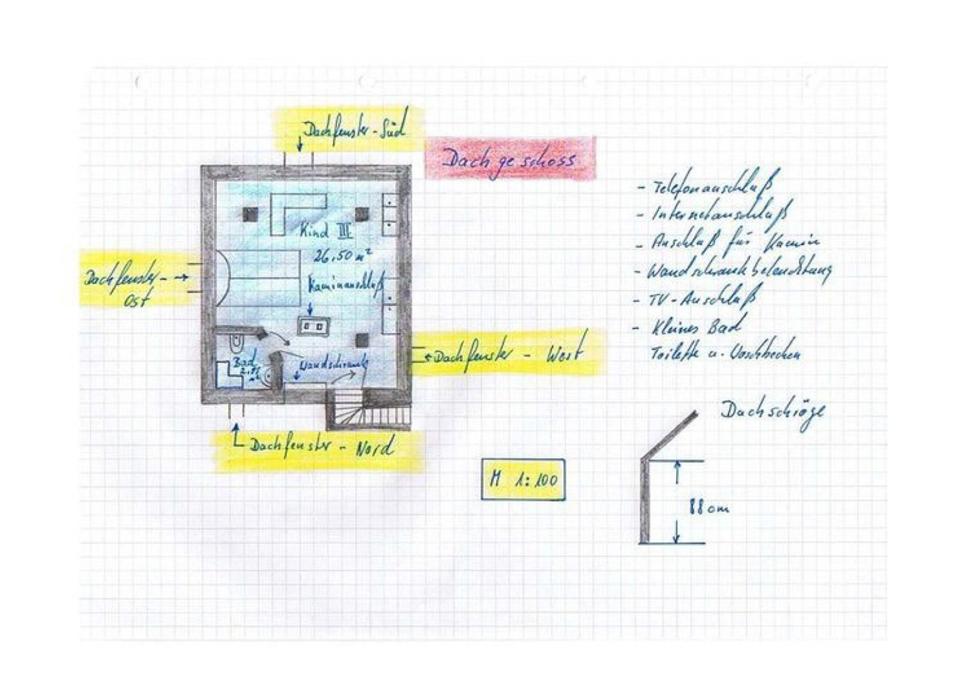 Dachfenster-Süd
Dachgeschoss
Kind III
26,50 m²
Kaminanschluß
Dachfenster-
Ost
Bad
m²
Wandschrank
Dachfenster - West
Dachfenster - Nord
- Telefonanschluß
- Internetanschluß
- Anschluß für Kamin
- Wandschrankbeleuchtung
- TV-Anschluß
- Kleines Bad
Toilette u. Waschbecken
Dachschräge
88 cm
M 1:100